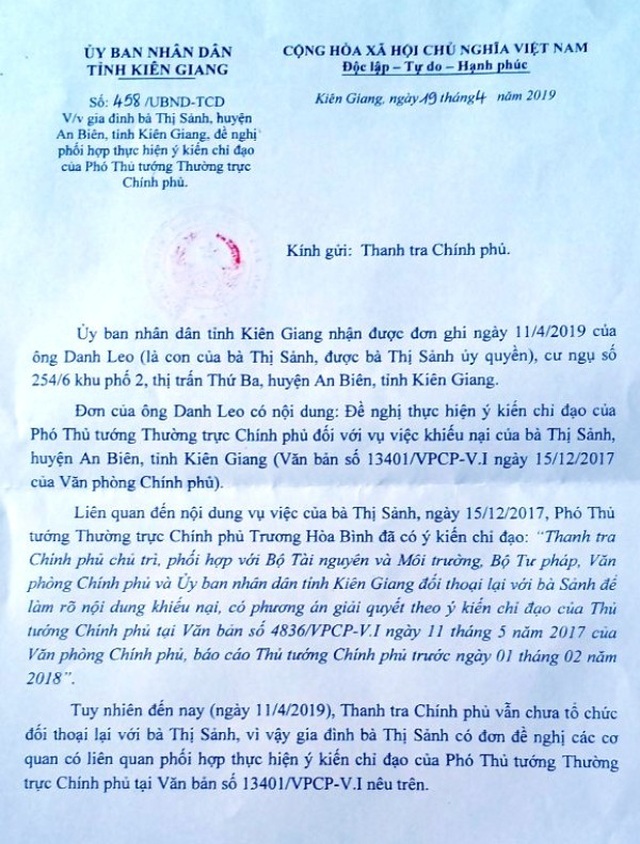 ỦY BAN NHÂN DÂN
TỈNH KIÊN GIANG
CỘNG HÒA XÃ HỘI CHỦ NGHĨA VIỆT NAM
Độc lập – Tự do – Hạnh phúc
Số: 458 /UBND-TCD
V/v gia đình bà Thị Sảnh, huyện
An Biên, tỉnh Kiên Giang, đề nghị
phối hợp thực hiện ý kiến chỉ đạo
của Phó Thủ tướng Thường trực
Chính phủ.
Kiên Giang, ngày 19 tháng 4 năm 2019
Kính gửi: Thanh tra Chính phủ.
Ủy ban nhân dân tỉnh Kiên Giang nhận được đơn ghi ngày 11/4/2019 của
ông Danh Leo (là con của bà Thị Sảnh, được bà Thị Sảnh ủy quyền), cư ngụ số
254/6 khu phố 2, thị trấn Thứ Ba, huyện An Biên, tỉnh Kiên Giang.
Đơn của ông Danh Leo có nội dung: Đề nghị thực hiện ý kiến chỉ đạo của
Phó Thủ tướng Thường trực Chính phủ đối với vụ việc khiếu nại của bà Thị Sảnh,
huyện An Biên, tỉnh Kiên Giang (Văn bản số 13401/VPCP-V.I ngày 15/12/2017
của Văn phòng Chính phủ).
Liên quan đến nội dung vụ việc của bà Thị Sảnh, ngày 15/12/2017, Phó Thủ
tướng Thường trực Chính phủ Trương Hòa Bình đã có ý kiến chỉ đạo: “Thanh tra
Chính phủ chủ trì, phối hợp với Bộ Tài nguyên và Môi trường, Bộ Tư pháp, Văn
phòng Chính phủ và Ủy ban nhân dân tỉnh Kiên Giang đối thoại lại với bà Sảnh để
làm rõ nội dung khiếu nại, có phương án giải quyết theo ý kiến chỉ đạo của Thủ
tướng Chính phủ tại Văn bản số 4836/VPCP-V.I ngày 11 tháng 5 năm 2017 của
Văn phòng Chính phủ, báo cáo Thủ tướng Chính phủ trước ngày 01 tháng 02 năm
2018”.
Tuy nhiên đến nay (ngày 11/4/2019), Thanh tra Chính phủ vẫn chưa tổ chức
đối thoại lại với bà Thị Sảnh, vì vậy gia đình bà Thị Sảnh có đơn đề nghị các cơ
quan có liên quan phối hợp thực hiện ý kiến chỉ đạo của Phó Thủ tướng Thường
trực Chính phủ tại Văn bản số 13401/VPCP-V.I nêu trên.